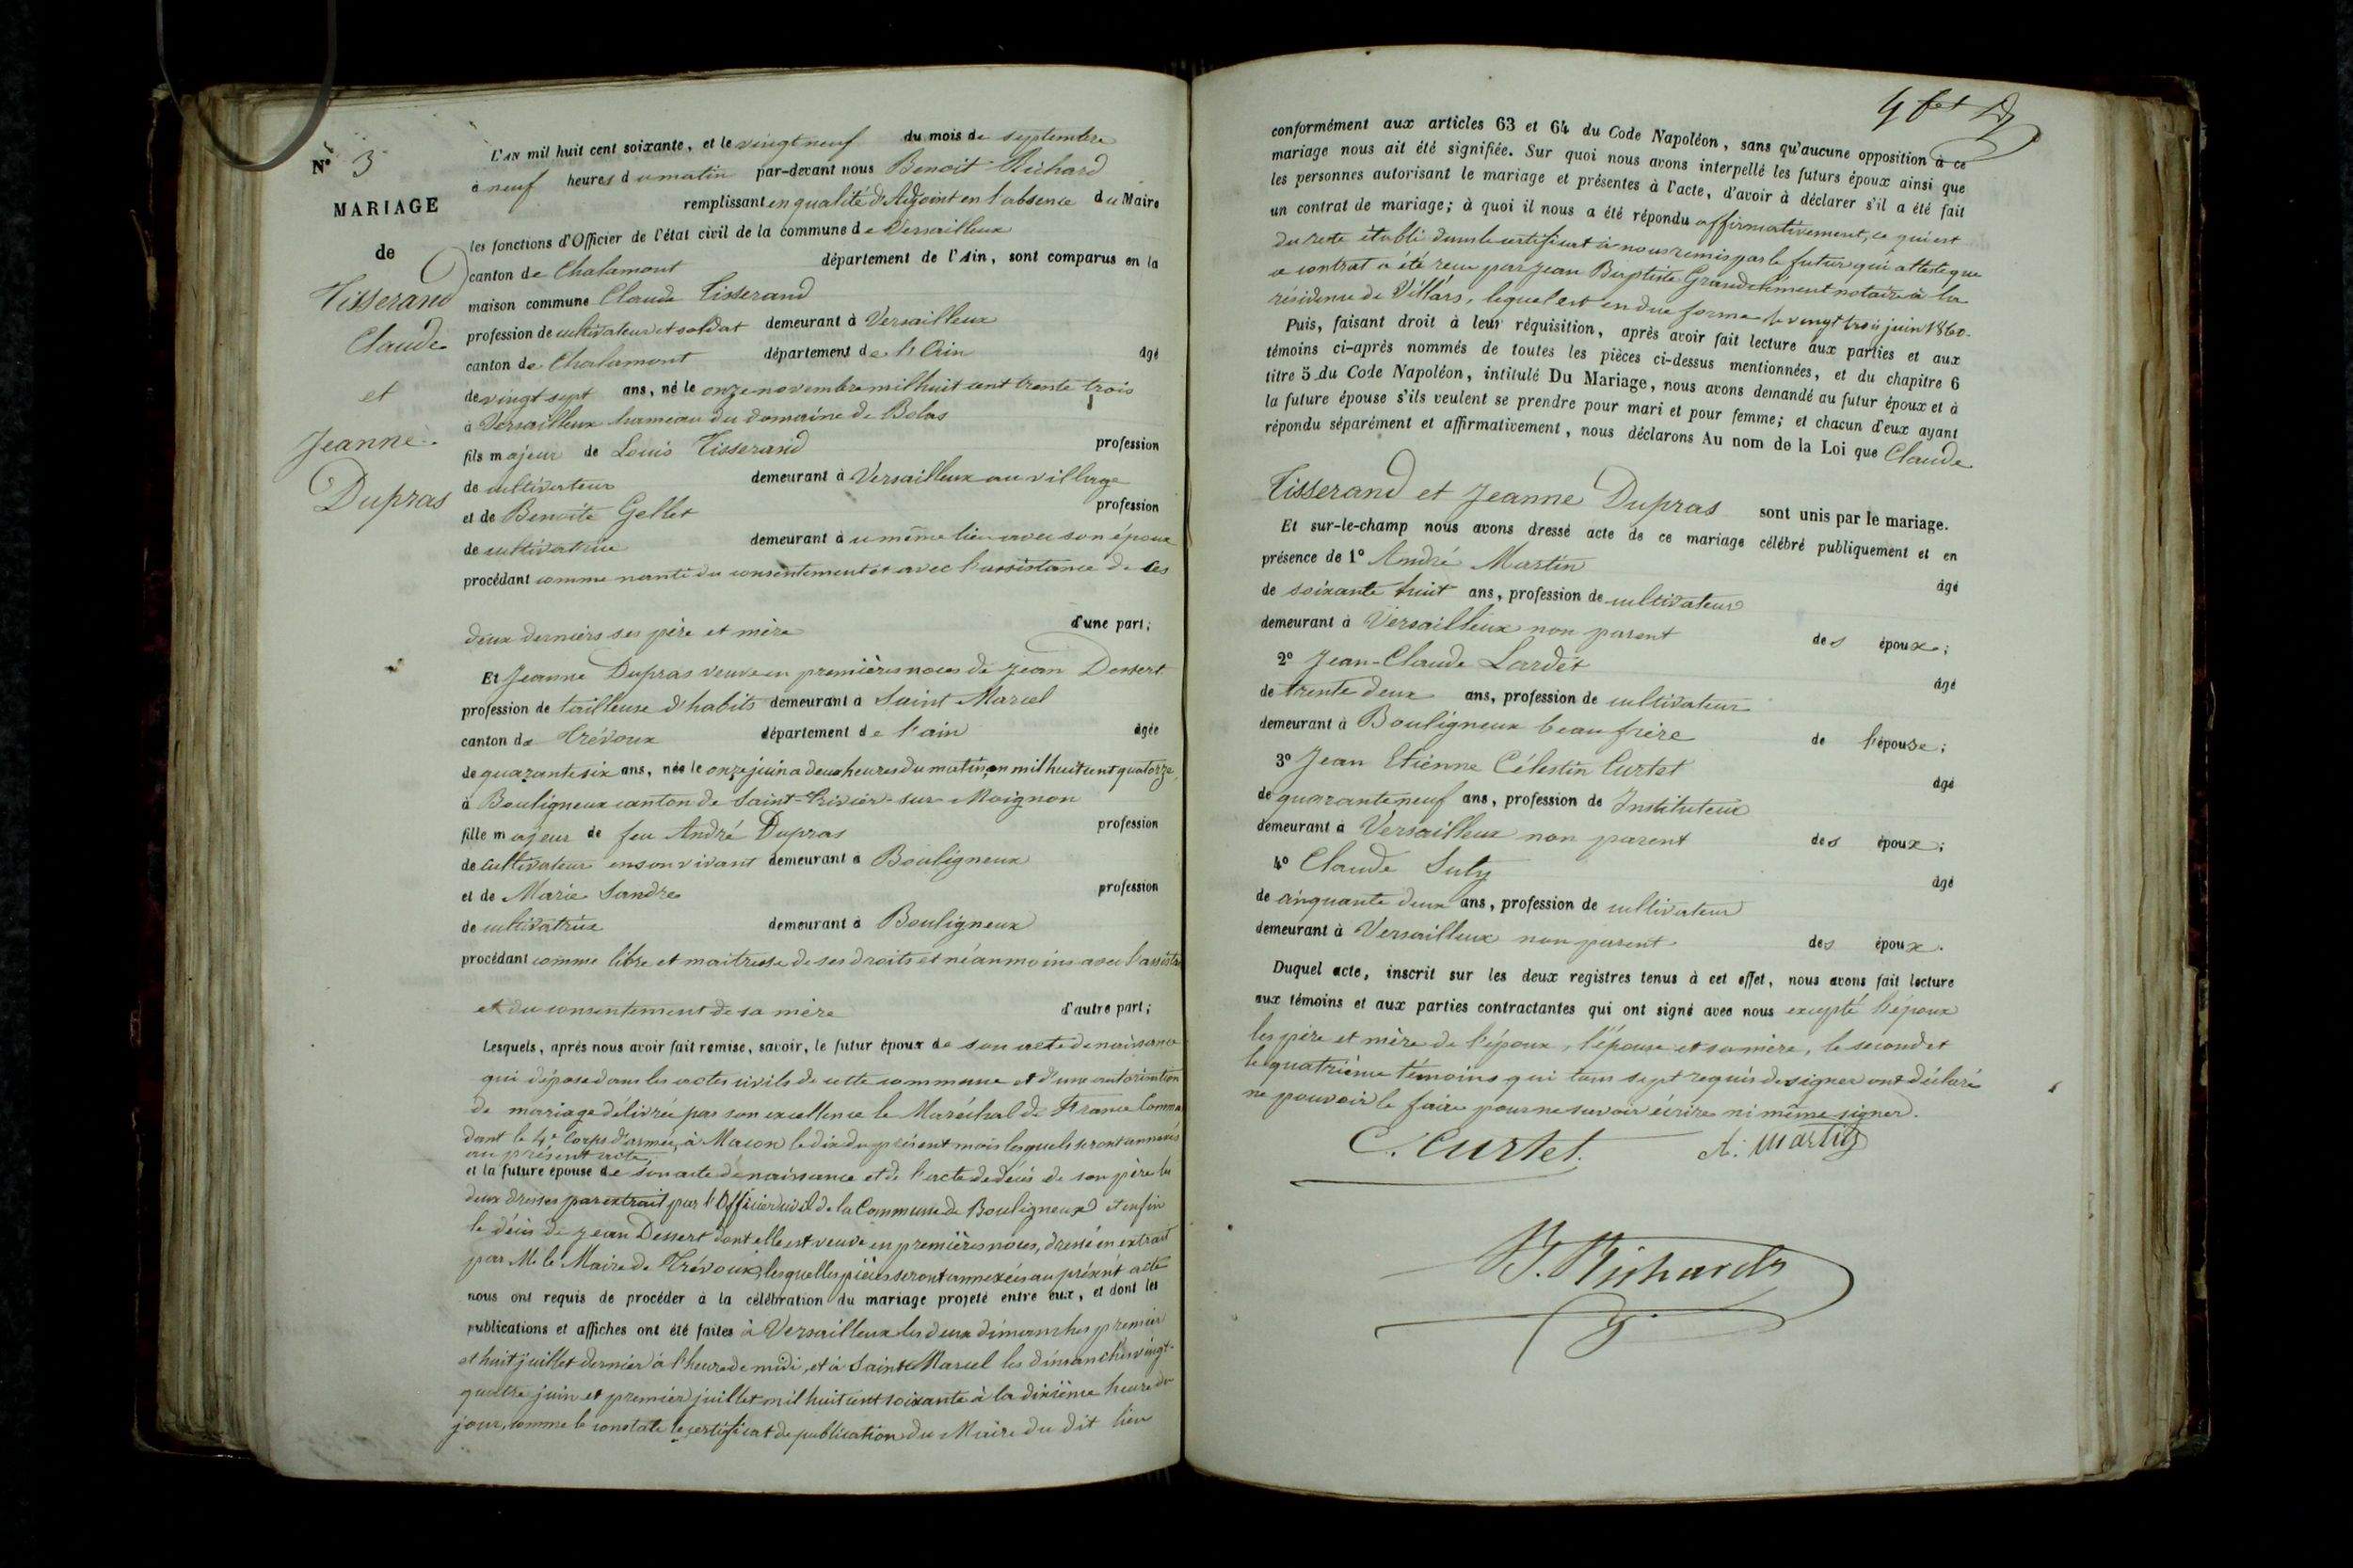 N° 3
MARIAGE
de
Tisserand
Claude
et
Jeanne
Dupras
L'AN mil huit cent soixante, et le vingt neuf du mois de septembre
à neuf heures du matin par-devant nous Benoit Richard
remplissant en qualité d'Adjoint en l'absence du Maire
les fonctions d'Officier de l'état civil de la commune de Versailleux
canton de Chalamont département de l'Ain, sont comparus en la
maison commune Claude Tisserand
profession de cultivateur et soldat demeurant à Versailleux
canton de Chalamont département de l'Ain âgé
de vingt sept ans, né le onze novembre mil huit cent trente trois
à Versailleux hameau du domaine de Bolas
fils majeur de Louis Tisserand profession
de cultivateur demeurant à Versailleux au village
et de Benoite Gellet profession
de cultivatrice demeurant à u même lieu avec son époux
procédant comme nanti du consentement et avec l'assistance de ces
deux derniers ses père et mère d'une part;
Et Jeanne Dupras veuve en premières noces de Jean Dessert
profession de tailleuse d'habits demeurant à Saint Marcel
canton de Trévoux département de l'ain âgée
de quarante six ans, née le onze juin a deux heures du matin, en mil huit cent quatorze,
à Bouligneux canton de Saint-Trivier-sur-Moignon
fille majeur de feu André Dupras profession
de cultivateur en son vivant demeurant à Bouligneux
et de Marie Sandre profession
de cultivatrice demeurant à Bouligneux
procédant comme libre et maitresse de ses droits et néanmoins avec l'assista
et du consentement de sa mère d'autre part;
Lesquels, après nous avoir fait remise, savoir, le futur époux de son acte de naissance
qui déposé dans les actes civils de cette commune et d'une autorisation
de mariage délivrée par son excellence le Maréchal de France Comman
dant le 4e Corps d'armée, à Macon le dix du présent mois lesquels seront annexés
au présent acte.
et la future épouse de son acte de naissance et de l'acte de décès de son père les
deux dressés par extrait par l'Officier civil de la Commune de Bouligneux et enfin
le décès de Jean Dessert dont elle est veuve en premières noces, dressé en extrait
par M. le Maire de Trévoux, lesquelles pièces seront annexées au présent acte
nous ont requis de procéder à la célébration du mariage projeté entre eux, et dont les
publications et affiches ont été faites à Versailleux les deux dimanches premier
et huit juillet dernier à l'heure de midi, et à Saint Marcel les dimanches vingt-
quatre juin et premier juillet mil huit cent soixante à la dixième heure du
jour, comme le constate le certificat de publication du Maire du dit lieu
conformément aux articles 63 et 64 du Code Napoléon, sans qu'aucune opposition à ce
mariage nous ait été signifiée. Sur quoi nous avons interpellé les futurs époux ainsi que
les personnes autorisant le mariage et présentes à l'acte, d'avoir à déclarer s'il a été fait
un contrat de mariage; à quoi il nous a été répondu affirmativement, ce qui est
du reste établi dans le certificat à nous remis par le futur qui atteste que
ce contrat a été reçu par Jean Baptiste Grandclément notaire à la
résidence de Villars, lequel est en due forme le vingt trois juin 1860.
Puis, faisant droit à leur réquisition, après avoir fait lecture aux parties et aux
témoins ci-après nommés de toutes les pièces ci-dessus mentionnées, et du chapitre 6
titre 5 du Code Napoléon, intitulé Du Mariage, nous avons demandé au futur époux et à
la future épouse s'ils veulent se prendre pour mari et pour femme; et chacun d'eux ayant
répondu séparément et affirmativement, nous déclarons Au nom de la Loi que Claude
Tisserand et Jeanne Dupras sont unis par le mariage.
Et sur-le-champ nous avons dressé acte de ce mariage célébré publiquement et en
présence de 1° André Martin âgé
de soixante huit ans, profession de cultivateur
demeurant à Versailleux non parent des époux;
2° Jean-Claude Lardet âgé
de trente deux ans, profession de cultivateur
demeurant à Bouligneux beau frère de l'épouse;
3° Jean Etienne Célestin Curtet âgé
de quarante neuf ans, profession de Instituteur
demeurant à Versailleux non parent des époux;
4° Claude Suty âgé
de cinquante deux ans, profession de cultivateur
demeurant à Versailleux non parent des époux.
Duquel acte, inscrit sur les deux registres tenus à cet effet, nous avons fait lecture
aux témoins et aux parties contractantes qui ont signé avec nous excepté l'époux
les père et mère de l'époux, l'épouse et sa mère, le second et
le quatrième témoins qui tous sept requis de signer ont déclaré
ne pouvoir le faire pour ne savoir écrire ni même signer.
C. Curtet. A. Martin
B. Richard